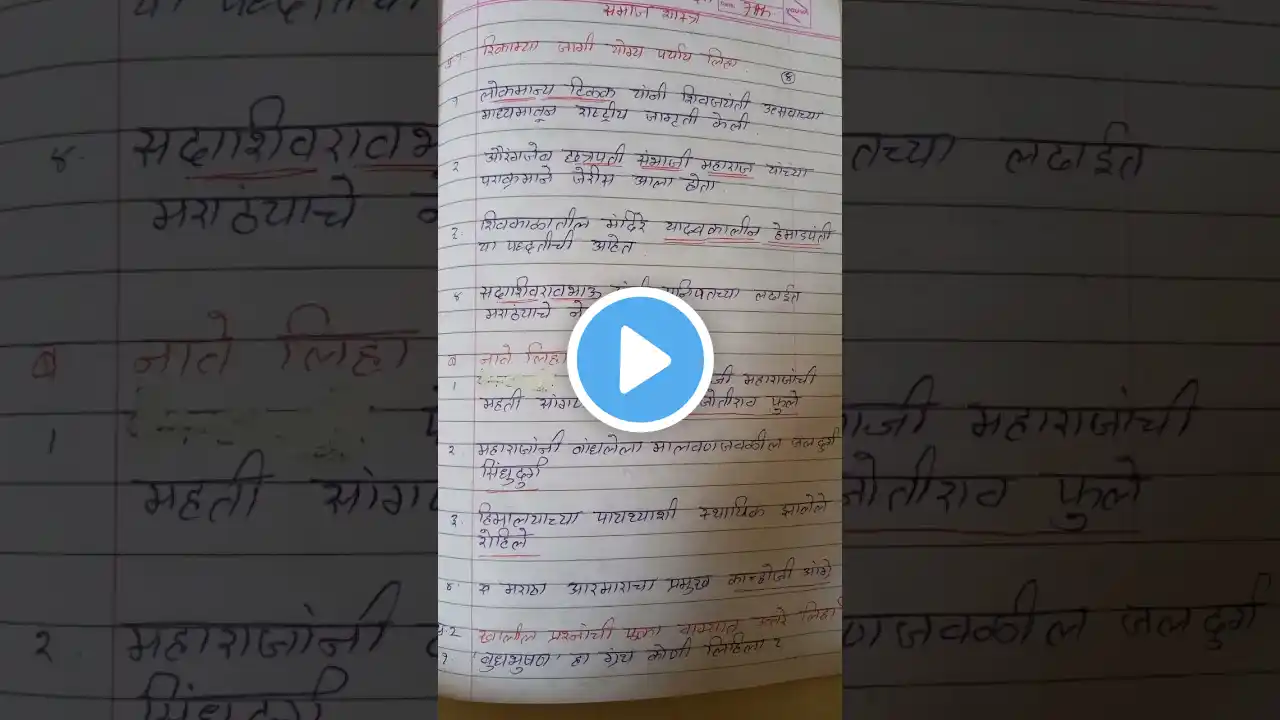 समाज शास्त्र
रिकाम्या जागी योग्य पर्याय लिहा.
(४)
१ लोकमान्य टिळक यांनी शिवजयंती उत्सवाच्या
माध्यमातून राष्ट्रीय जागृती केली.
२ औरंगजेब छत्रपती संभाजी महाराज यांच्या
पराक्रमाने जेरीस आला होता.
३. शिवकाळातील मंदिरे यादवकालीन हेमाडपंती
या पद्धतीची आहेत.
४ सदाशिवरावभाऊ पानिपतच्या लढाईत
मराठ्याचे
ब नाते लिहा
१ महाराजांची
महती जोतीराव फुले
२. महाराजांनी बांधलेला मालवणजवळील जलदुर्ग
सिंधुदुर्ग
३. हिमालयाच्या पायथ्याशी स्थायिक झालेले
रोहिले
४. मराठा आरमाराचा प्रमुख कान्होजी आंग्रे
खालील प्रश्नांची एका वाक्यात उत्तरे लिहा
१ 'बुधभुषण' हा ग्रंथ कोणी लिहिला ?